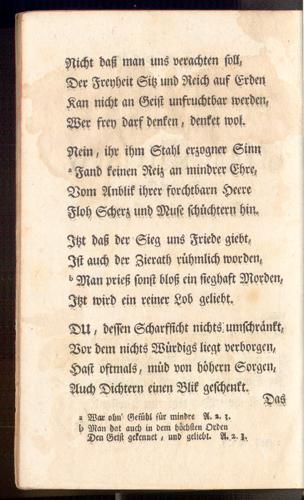 Nicht daß man uns verachten soll,
Der Freyheit Sitz und Reich auf Erden
Kan nicht an Geist unfruchtbar werden,
Wer frey darf denken, denket wol.
Nein, ihr ihm Stahl erzogner Sinn
a Fand keinen Reiz an mindrer Ehre,
Vom Anblik ihrer forchtbarn Heere
Floh Scherz und Muse schüchtern hin.
Itzt daß der Sieg uns Friede giebt,
Ist auch der Zierath rühmlich worden,
b Man prieß sonst bloß ein sieghaft Morden,
Itzt wird ein reiner Lob geliebt.
DU, dessen Scharfsicht nichts umschränkt,
Vor dem nichts Würdigs liegt verborgen,
Hast oftmals, müd von höhern Sorgen,
Auch Dichtern einen Blik geschenkt.
Das
a War ohn' Gefühl für mindre A. 2. 3.
b Man hat auch in dem höchsten Orden
Den Geist gekennet, und geliebt. A. 2. 3.